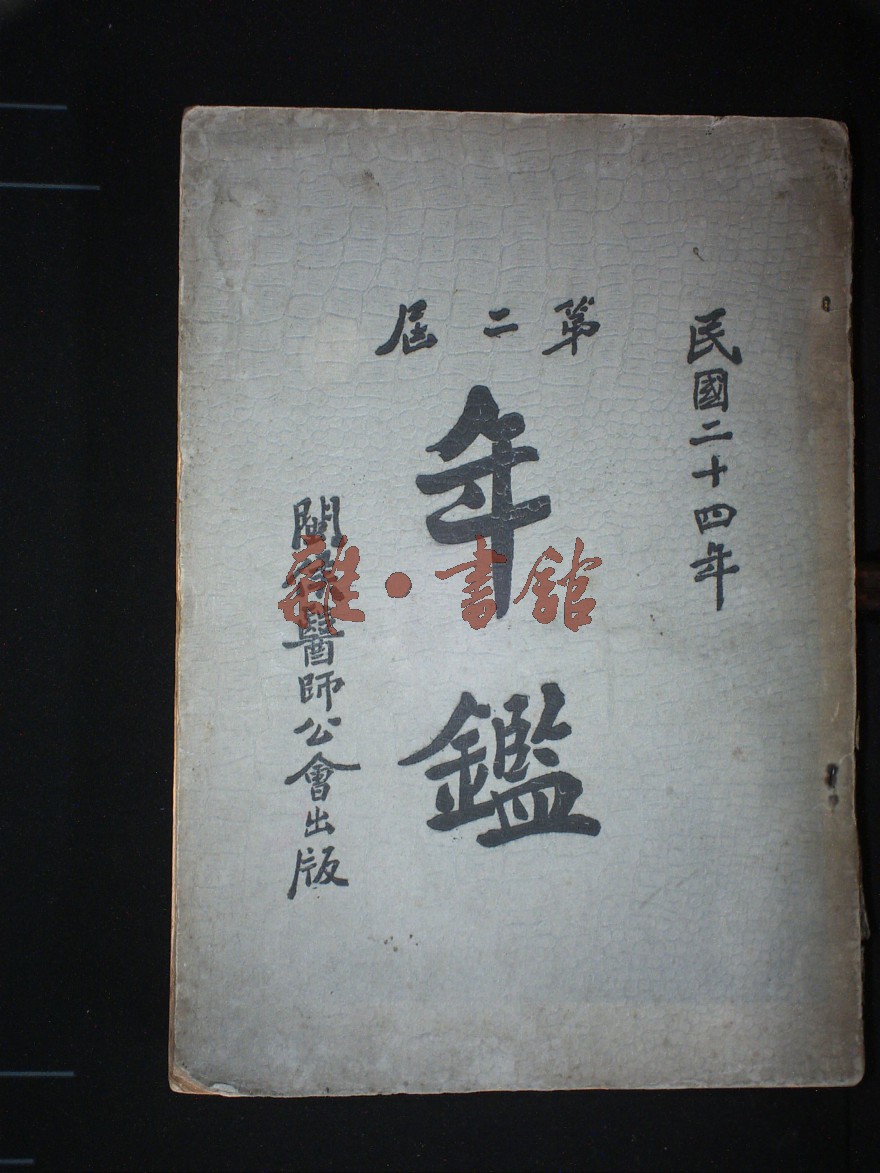 民國二十四年
第二屆
年鑑
閩醫師公會出版
雜·書舘